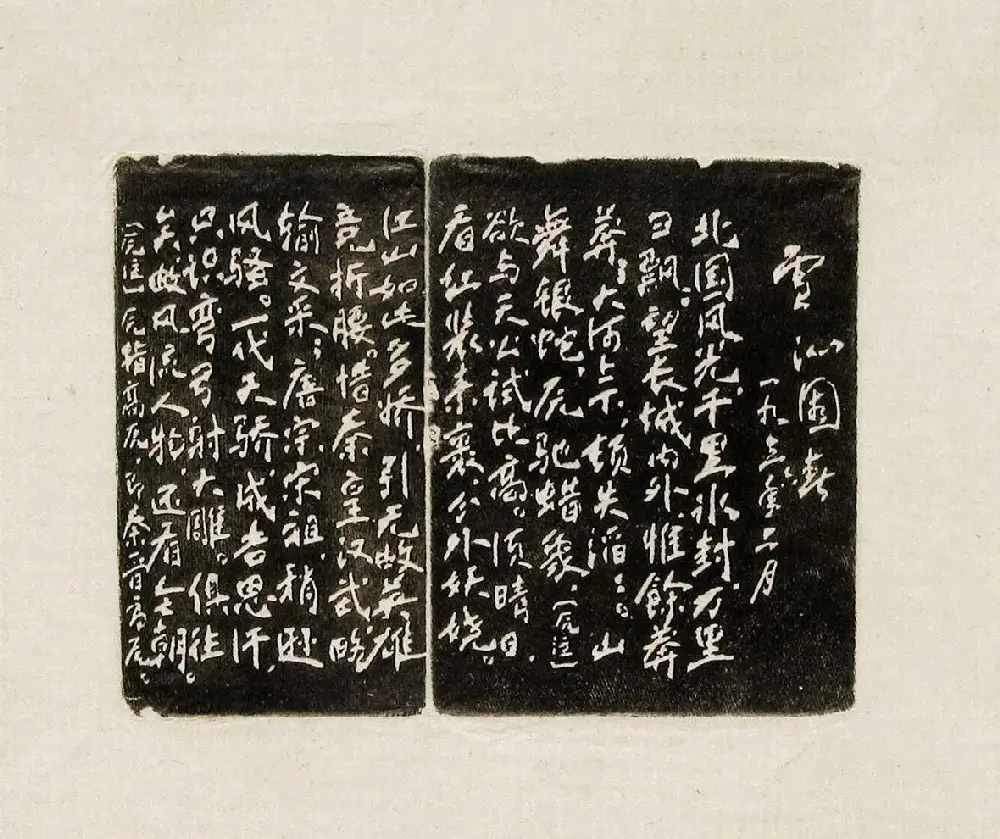 雪 沁園春
一九三六年二月
北国风光,千里冰封,万里
雪飘。望长城内外,惟餘莽
莽;大河上下,顿失滔滔。山
舞银蛇,原驰蜡象,〔原注〕
欲与天公试比高。须晴日,
看红装素裹,分外妖娆。
江山如此多娇,引无数英雄
竞折腰。惜秦皇汉武,略
输文采;唐宗宋祖,稍逊
风骚。一代天骄,成吉思汗,
只识弯弓射大雕。俱往
矣,数风流人物,还看今朝。
〔原注〕原指高原,即秦晋高原。